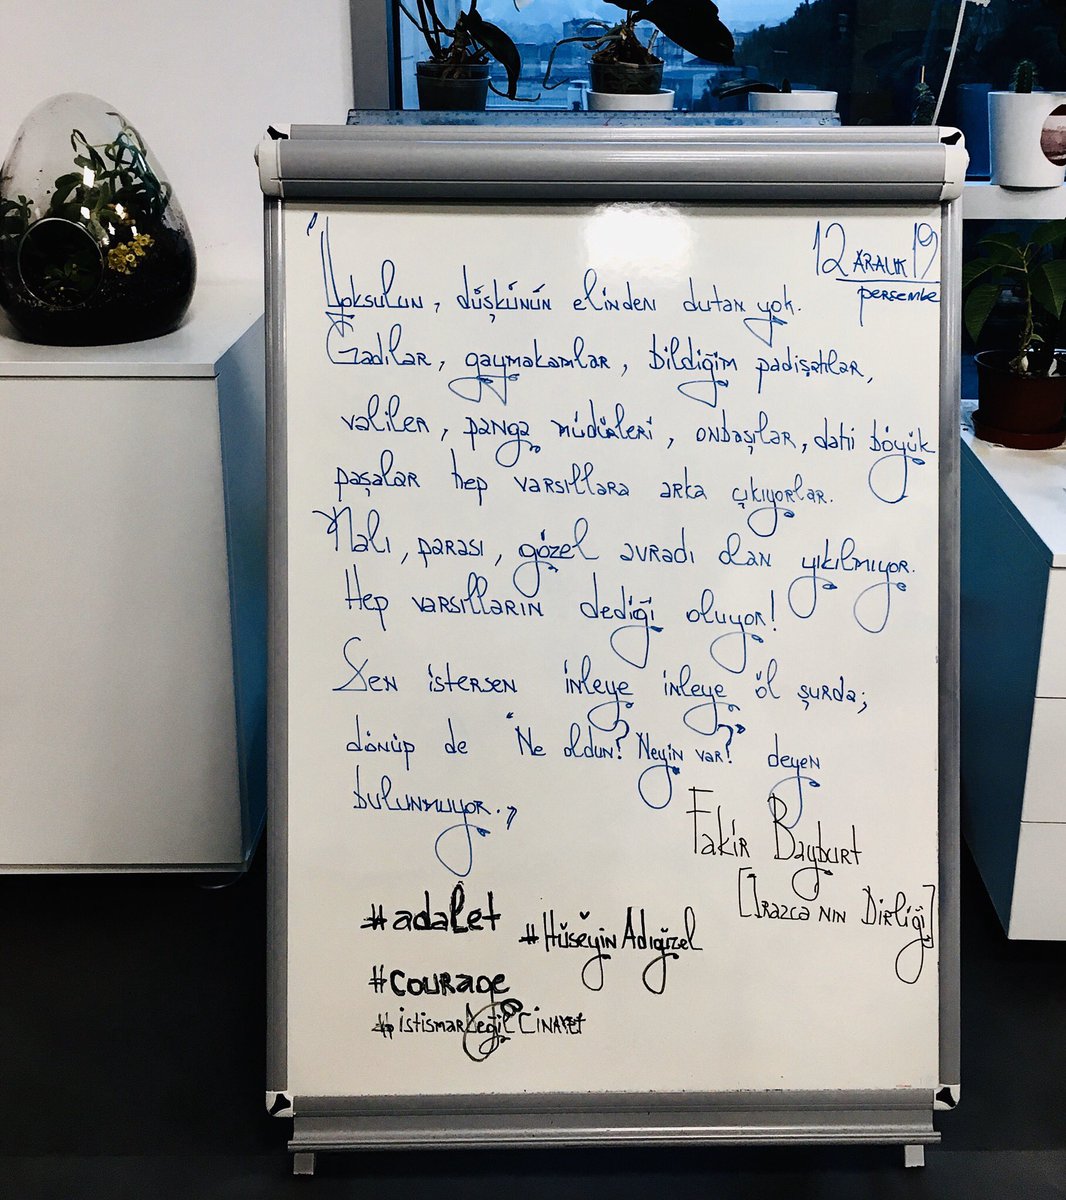 12 ARALIK 19
perşembe
"Yoksulun, düşkünün elinden dutan yok.
Gadılar, gaymakamlar, bildiğim padişahlar,
valiler, panga müdürleri, onbaşılar, dahi böyük
paşalar hep varsıllara arka çıkıyorlar.
Malı, parası, gözel avradı olan yıkılmıyor.
Hep varsılların dediği oluyor!
Sen istersen inleye inleye öl şurda;
dönüp de "Ne oldun? Neyin var?" deyen
bulunmuyor."
Fakir Bayburt
[Irazca'nın Dirliği]
#adalet
#Hüseyin Adıgüzel
#courage
#istismarDeğilCinayet